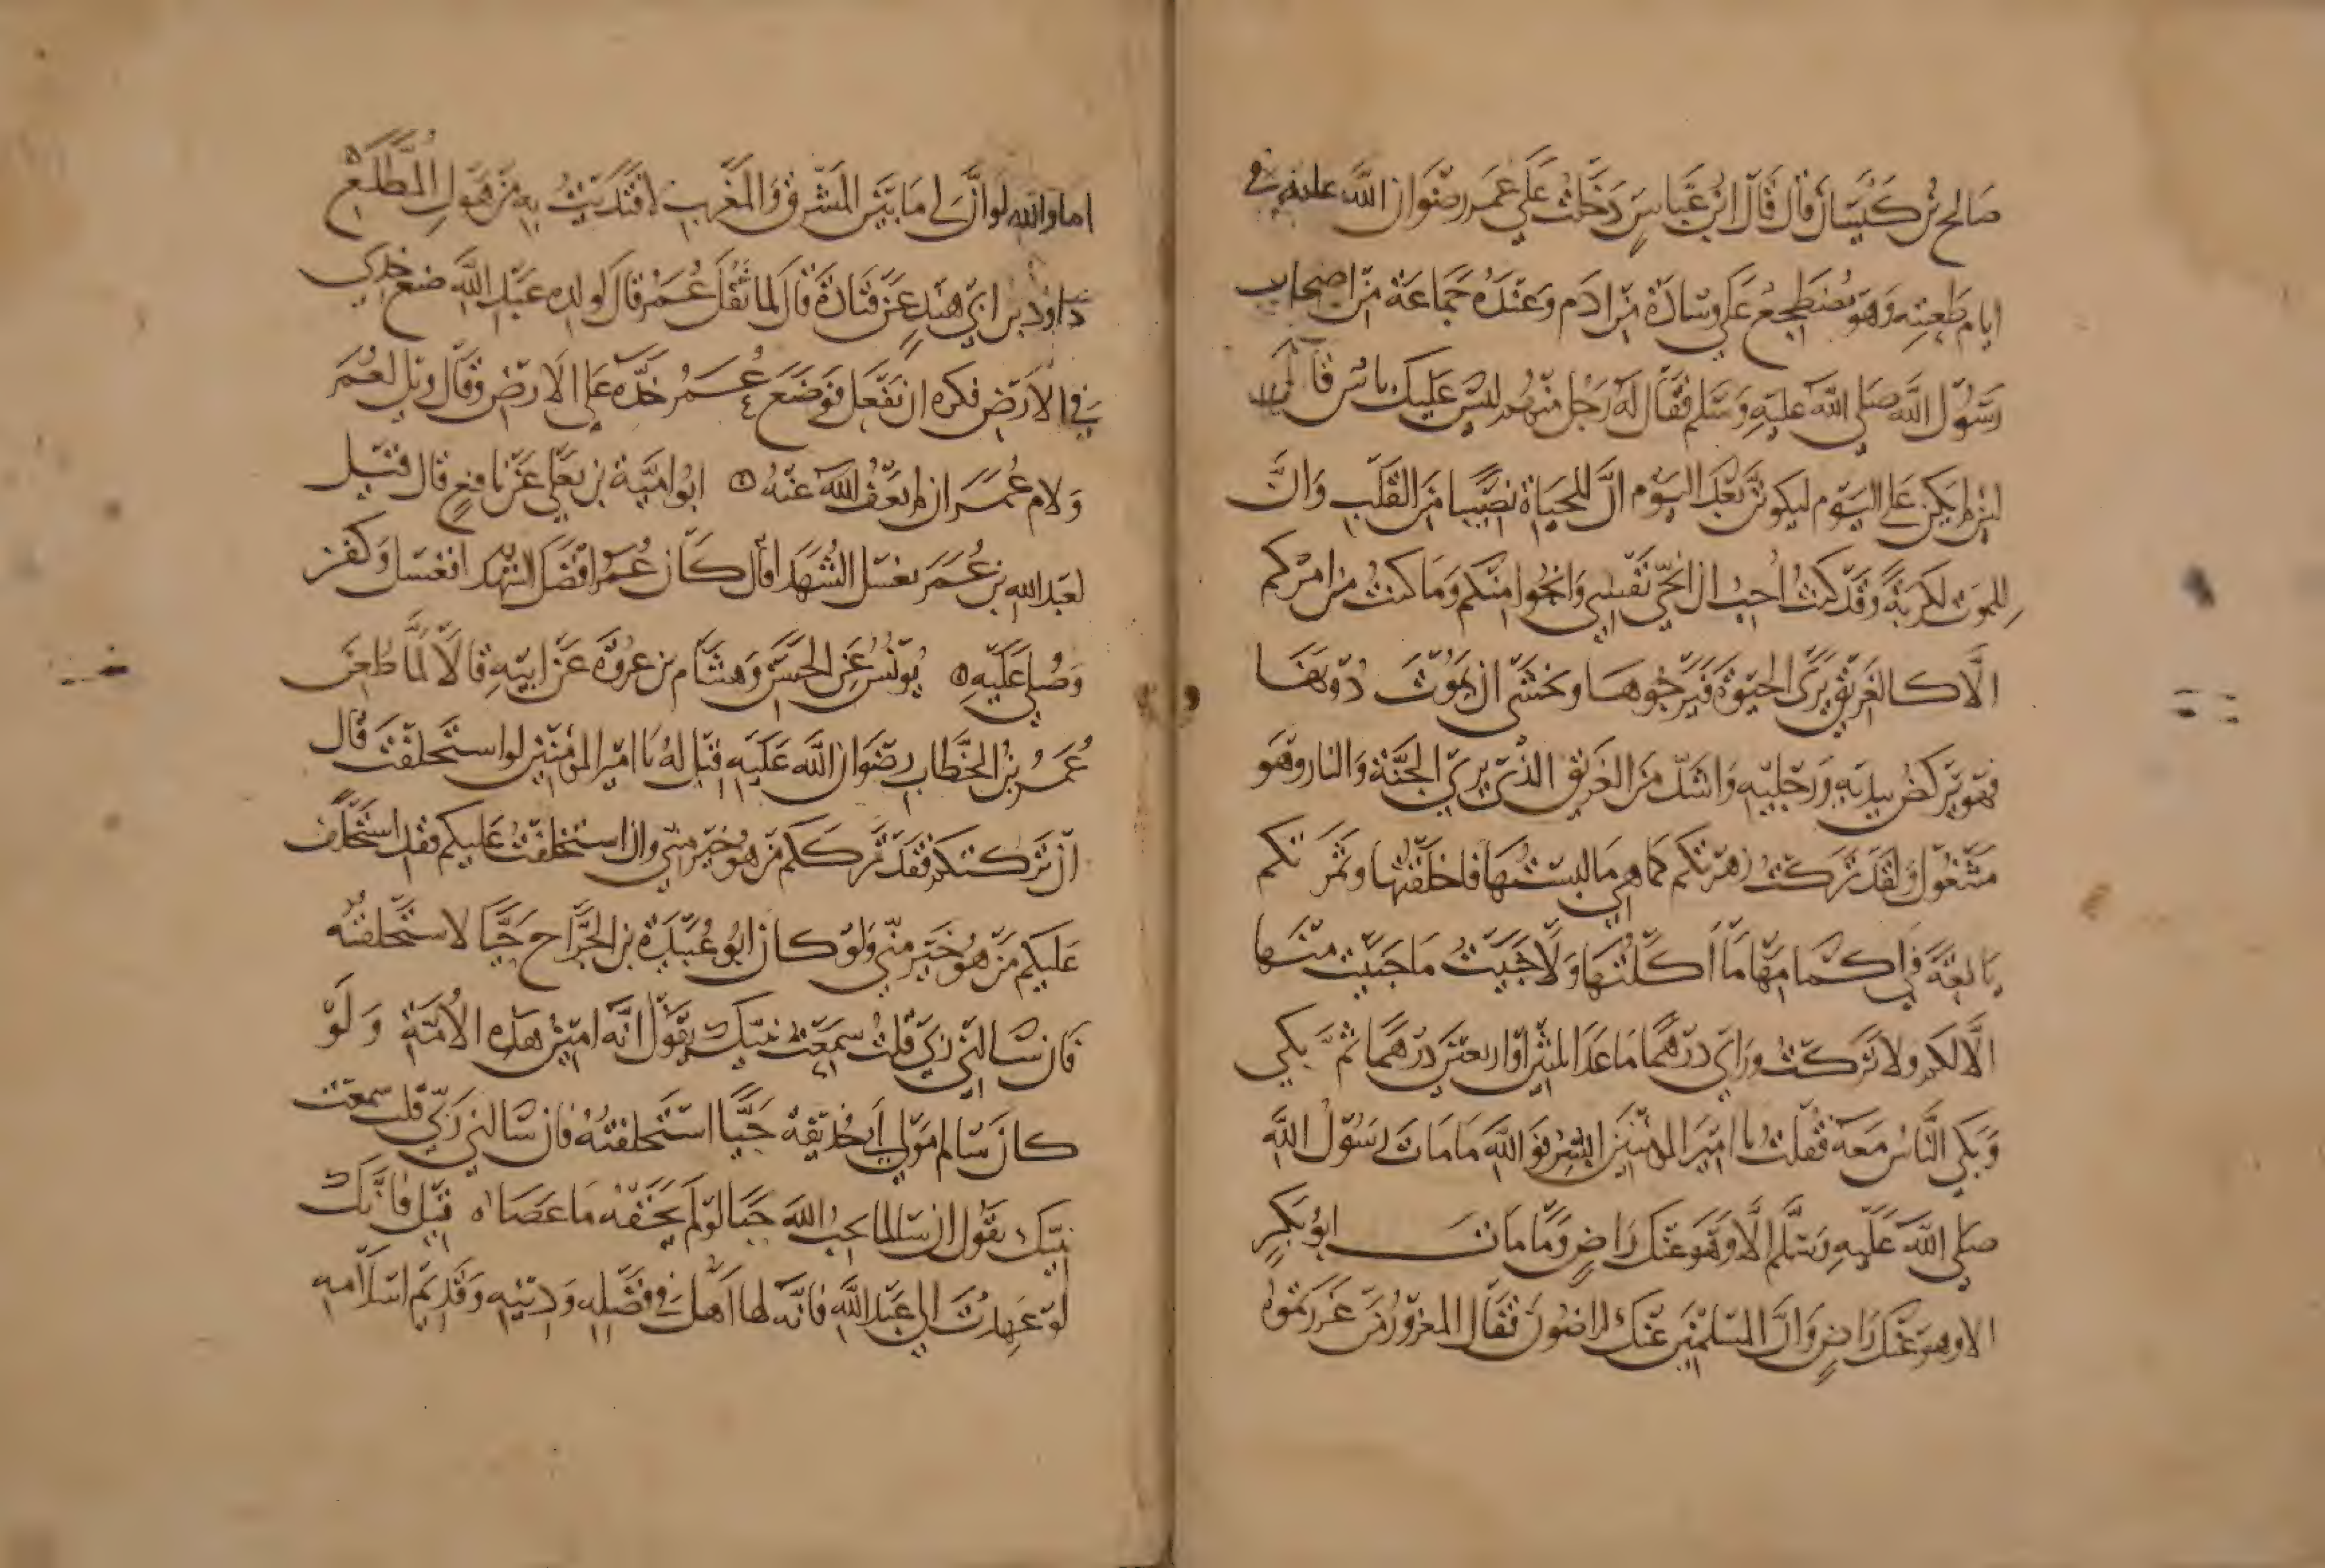 صالح بن كيسان قال قال ابن عباس دخلت على عمر رضوان الله عليه في
ايام طعنته وهو مضطجع على وسادة من ادم وعنده جماعة من اصحاب
رسول الله صلى الله عليه وسلم فقال له رجل منهم ليس عليك باس قال
لين لم يكن علي اليوم ليكونن بعد اليوم ان للحياة نصيبا من القلب وان
للموت لكربة وقد كنت احب ان انجي نفسي وانجوا منكم وما كنت من امركم
الا كالغريق يرى الحيوة فيرجوها ويخشى ان يموت دونها
فهو يركض بيديه ورجليه واشد من الغريق الذي يرى الجنة والنار وهو
مشغول ولقد تركت زهرتكم كما هي ما لبستها فاخلقتها وثمرتكم
يانعة في اكمامها ما اكلتها ولا جنيت ما جنيت منها
الا لكم ولا تركت وراي درهما ما عدا ثلثين او اربعين درهما ثم بكى
وبكى الناس معه فقلت يا امير المومنين ابشر فوالله ما مات رسول الله
صلى الله عليه وسلم الا وهو عنك راض وما مات ابو بكر
الا وهو عنك راض وان المسلمين عنك لراضون فقال المغرور من غررتموه
اما والله لو ان لي ما بين المشرق والمغرب لافتديت به من هول المطلع
داود بن ابي هند عن قتادة قال لما ثقل عمر قال لولده عبد الله ضع خدي
في الارض فكره ان يفعل فوضع عمر خده على الارض وقال ويل لعمر
ولام عمر ان لم يعف الله عنه ابو امية بن يعلى عن نافع قال قيل
لعبد الله بن عمر يغسل الشهدا قال كان عمر افضل الشهدا فغسل وكفن
وصلي عليه يونس عن الحسن وهشام بن عروة عن ابيه قالا لما طعن
عمر بن الخطاب رضوان الله عليه قيل له يا امير المومنين لو استخلفت قال
ان تركتكم فقد ترككم من هو خير مني وان استخلفت عليكم فقد استخلف
عليكم من هو خير مني ولو كان ابو عبيدة بن الجراح حيا لاستخلفته
فان سالني ربي قلت سمعت نبيك يقول انه امين هذه الامة ولو
كان سالم مولى ابي حذيفة حيا استخلفته فان سالني ربي قلت سمعت
نبيك يقول ان سالما يحب الله حبا لو لم يخفه ما عصاه قيل فانك
لو عهدت الى عبد الله فانه لها اهل في فضله ودينه وقديم اسلامه